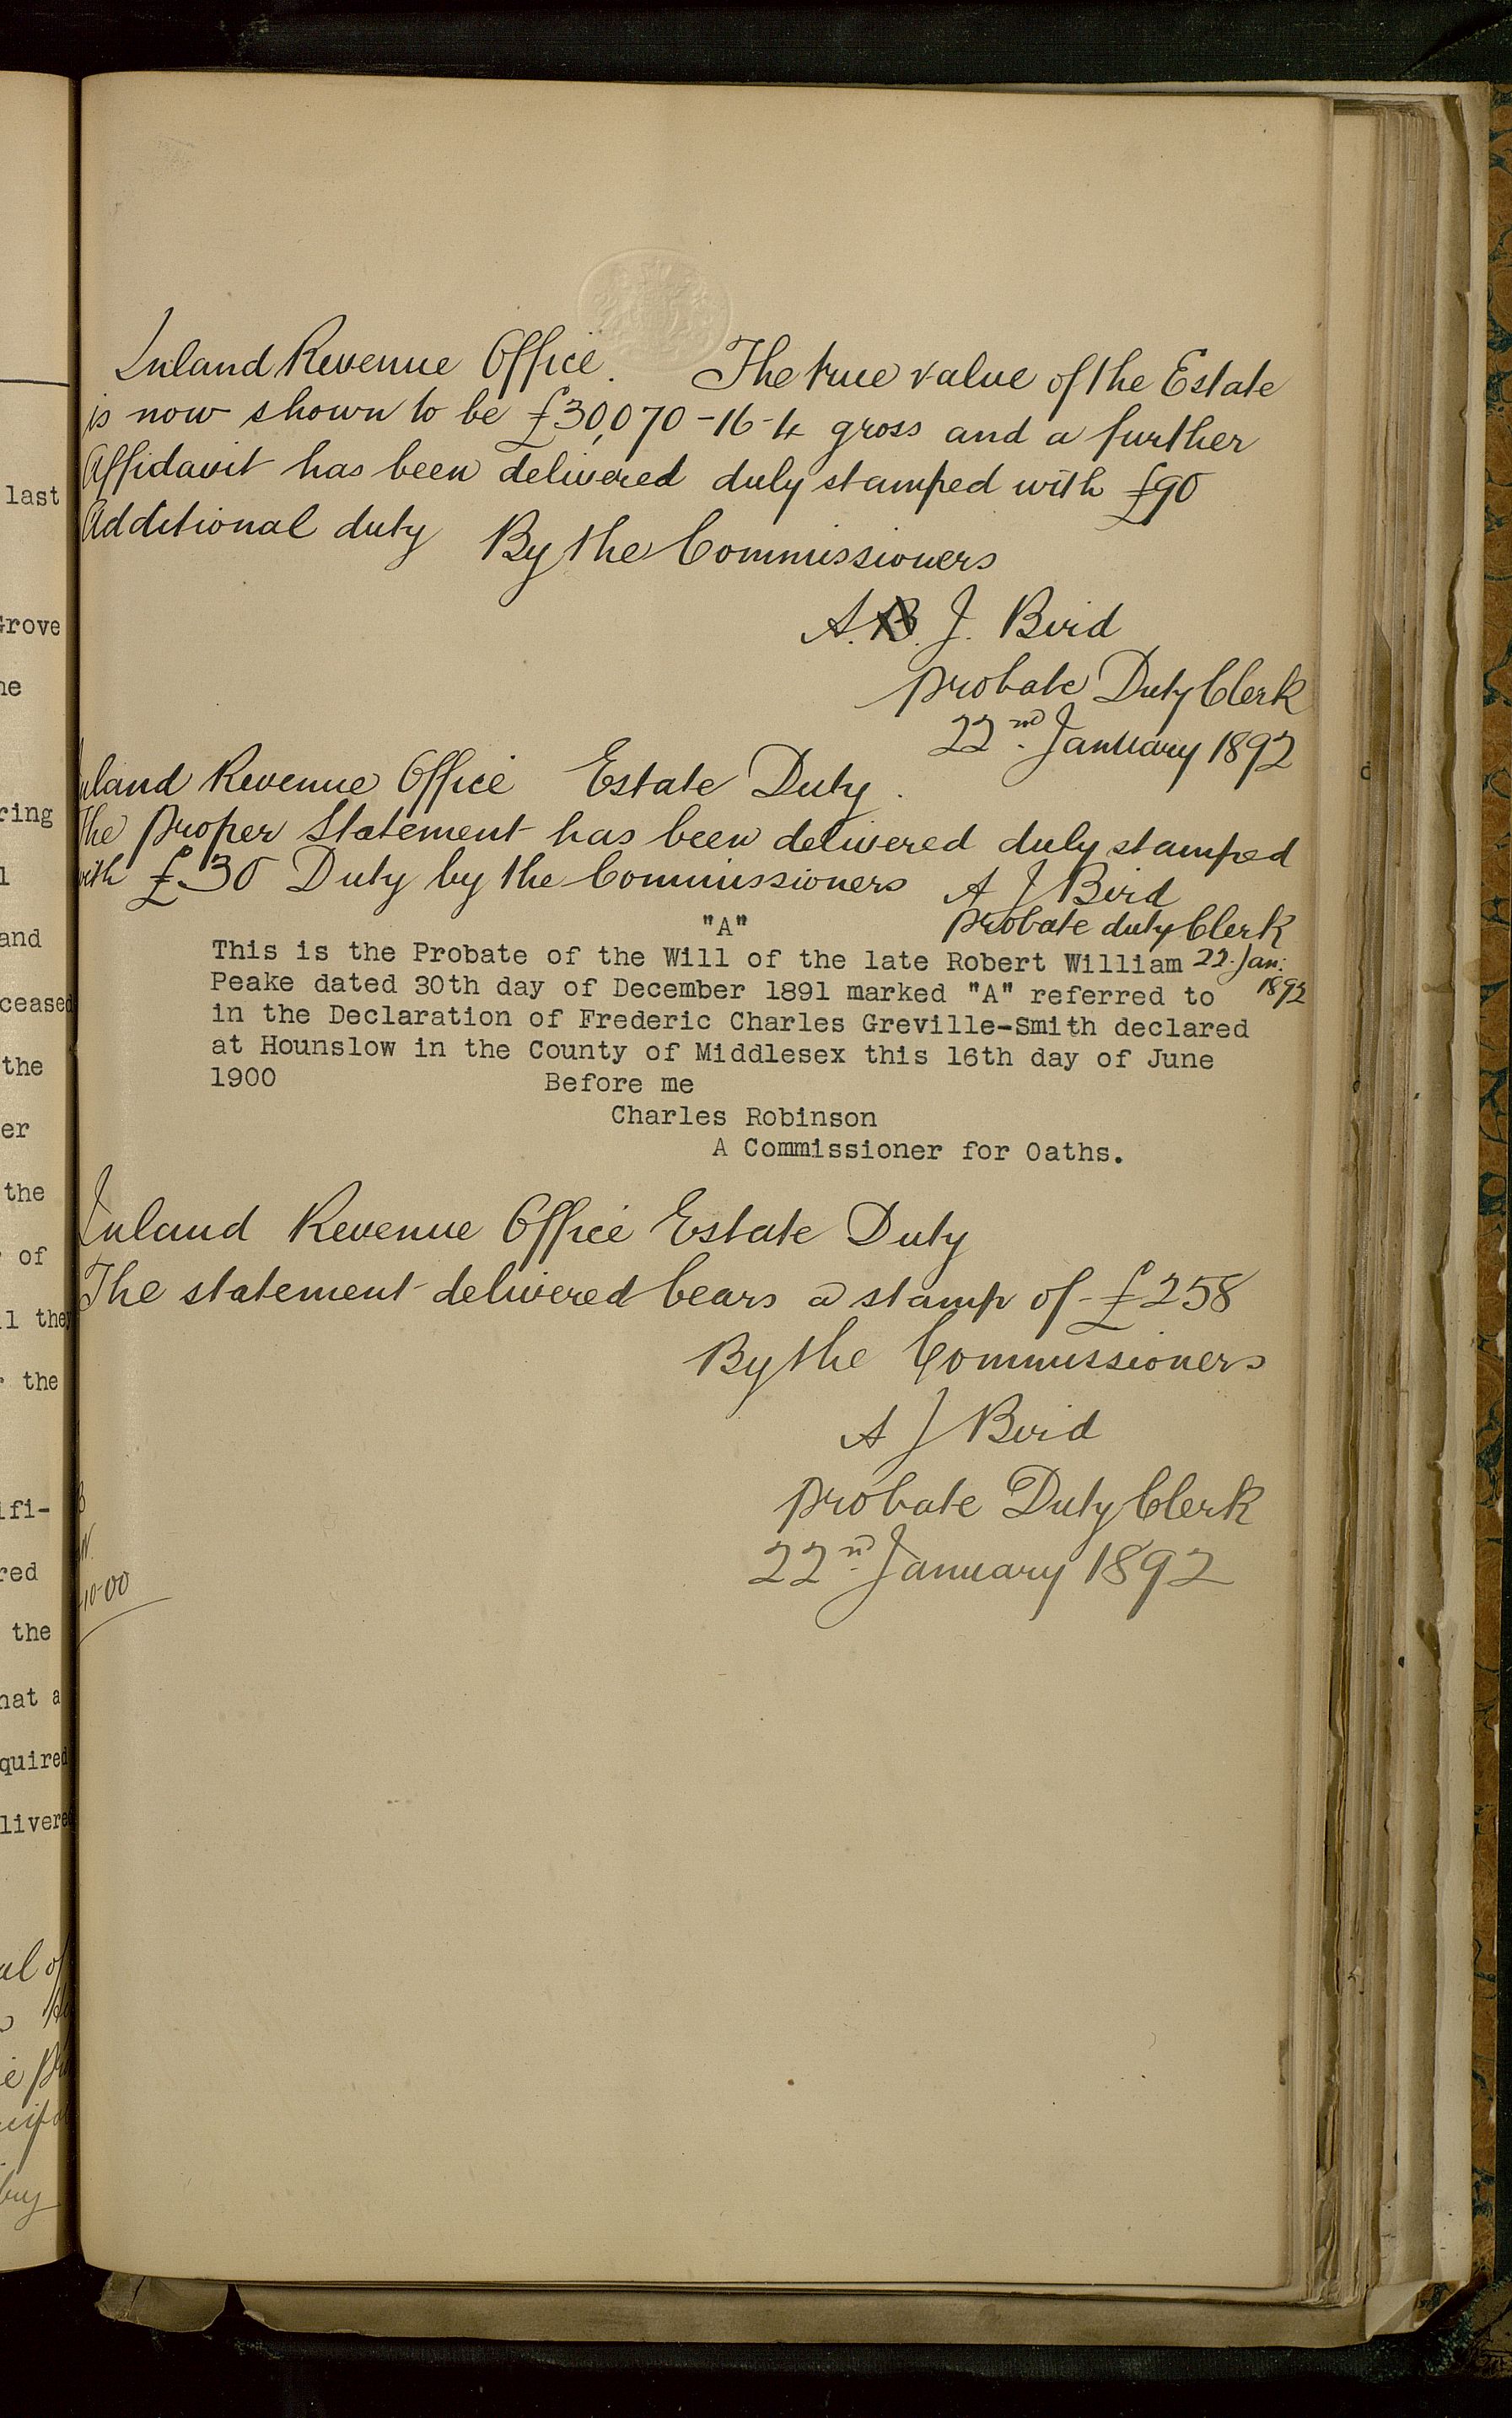 Inland Revenue Office. The true value of the Estate
is now shown to be £30,070-16-4 gross and a further
Affidavit has been delivered duly stamped with £90
Additional duty By the Commissioners
A. B. J. Bird
Probate Duty Clerk
22nd. January 1892
Inland Revenue Office Estate Duty.
The proper Statement has been delivered duly stamped
with £30 Duty by the Commissioners A J Bird
Probate duty Clerk
22. Jan: 1892
"A"
This is the Probate of the Will of the late Robert William
Peake dated 30th day of December 1891 marked "A" referred to
in the Declaration of Frederic Charles Greville-Smith declared
at Hounslow in the County of Middlesex this 16th day of June
1900 Before me
Charles Robinson
A Commissioner for Oaths.
Inland Revenue Office Estate Duty
The statement delivered bears a stamp of £258
By the Commissioners
A J Bird
Probate Duty Clerk
22nd. January 1892
last
Grove
ring
and
ceased
the
er
the
of
ll they
the
ifi-
red
the
hat a
quired
livered
al of